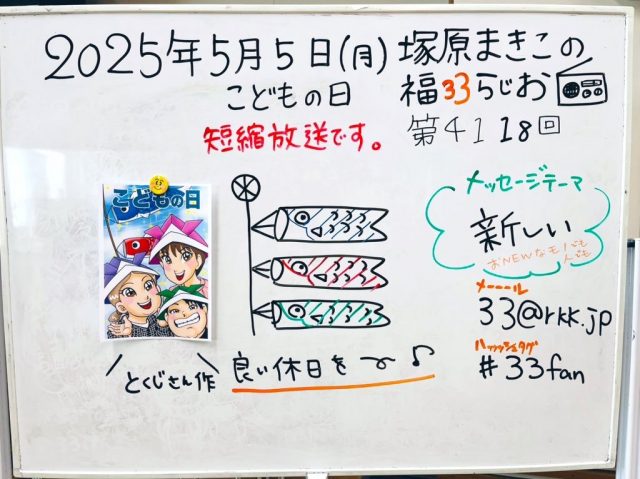 2025年5月5日(月) 塚原まきこの
こどもの日 福33らじお
短縮放送です。 第4118回
こどもの日
メッセージテーマ
新しい
おNEWなモノでも
人でも
メーーール
33@rkk.jp
ハッッシュタグ
#33fan
とくじさん作
良い休日を〜♪